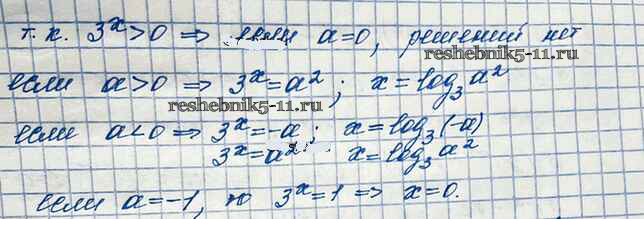 т.к. 3^x>0 ⇒ если a=0, решений нет
reshebnik5-11.ru
если a>0 ⇒ 3^x=a^2; x=log_3 a^2
reshebnik5-11.ru
если a<0 ⇒ 3^x=-a; x=log_3(-a)
3^x=a^2 x=log_3 a^2
если a=-1, то 3^x=1 ⇒ x=0.